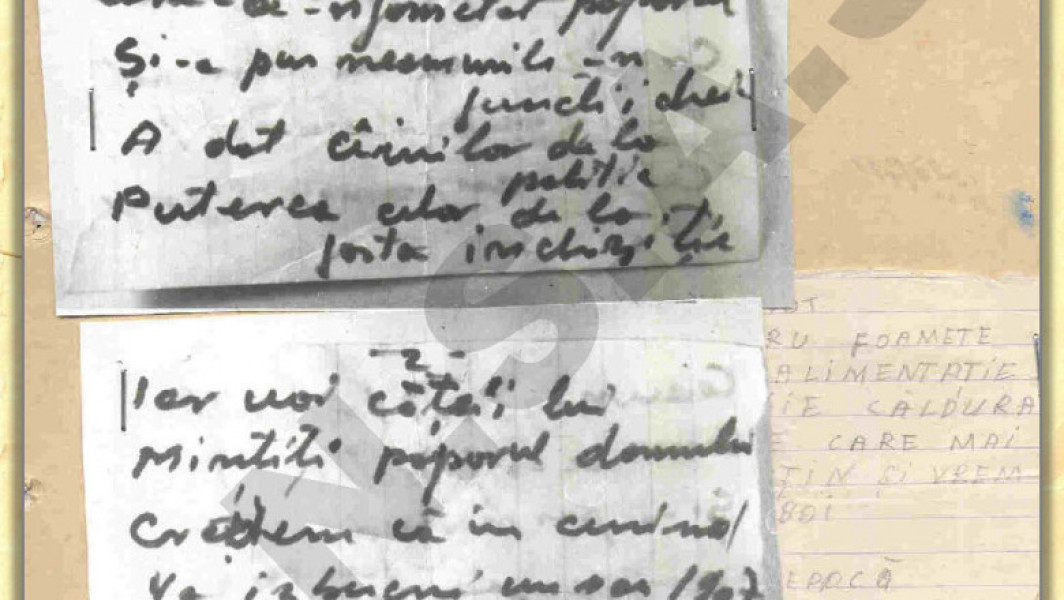 -a -nfometat poporul
Și-a pus neamurile -n
funcții cheie
A dat cîinilor de la
poliție
Puterea celor de la
fosta inchiziție
- 2 -
Iar voi cățeii lui
Mințiți poporul domnului
Credem că în curînd
Va izbucni un nou 1907
RU FOAMETE
ALIMENTATIE
IE CALDURA
E CARE MAI
TIN SI VREM
BOI
EPOCĂ